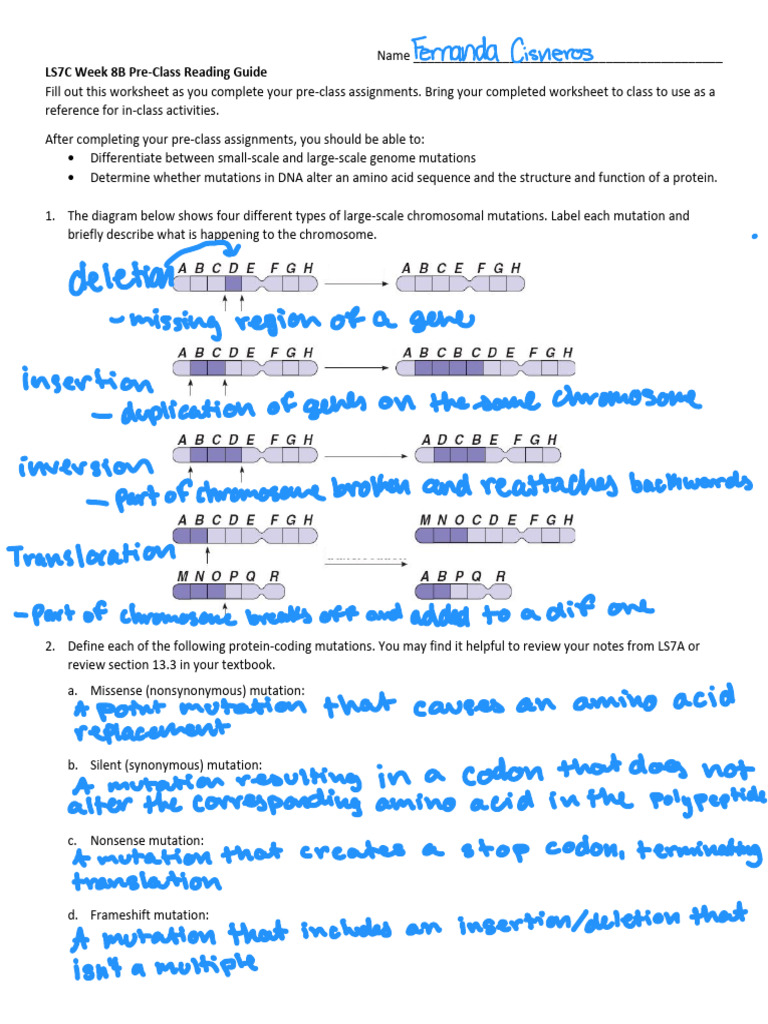 Name Fernanda Cisneros
LS7C Week 8B Pre-Class Reading Guide
Fill out this worksheet as you complete your pre-class assignments. Bring your completed worksheet to class to use as a
reference for in-class activities.
After completing your pre-class assignments, you should be able to:
• Differentiate between small-scale and large-scale genome mutations
• Determine whether mutations in DNA alter an amino acid sequence and the structure and function of a protein.
1. The diagram below shows four different types of large-scale chromosomal mutations. Label each mutation and
briefly describe what is happening to the chromosome.
deletion
A B C D E F G H A B C E F G H
- missing region of a gene
A B C D E F G H A B C B C D E F G H
insertion
- duplication of genes on the same chromosome
A B C D E F G H A D C B E F G H
inversion
- part of chromosome broken and reattaches backwards
A B C D E F G H M N O C D E F G H
Translocation
M N O P Q R A B P Q R
- Part of chromosome breaks off and added to a dif one
2. Define each of the following protein-coding mutations. You may find it helpful to review your notes from LS7A or
review section 13.3 in your textbook.
a. Missense (nonsynonymous) mutation:
A point mutation that causes an amino acid
replacement
b. Silent (synonymous) mutation:
A mutation resulting in a codon that does not
alter the corresponding amino acid in the polypeptide
c. Nonsense mutation:
A mutation that creates a stop codon, terminating
translation
d. Frameshift mutation:
A mutation that includes an insertion/deletion that
isn't a multiple